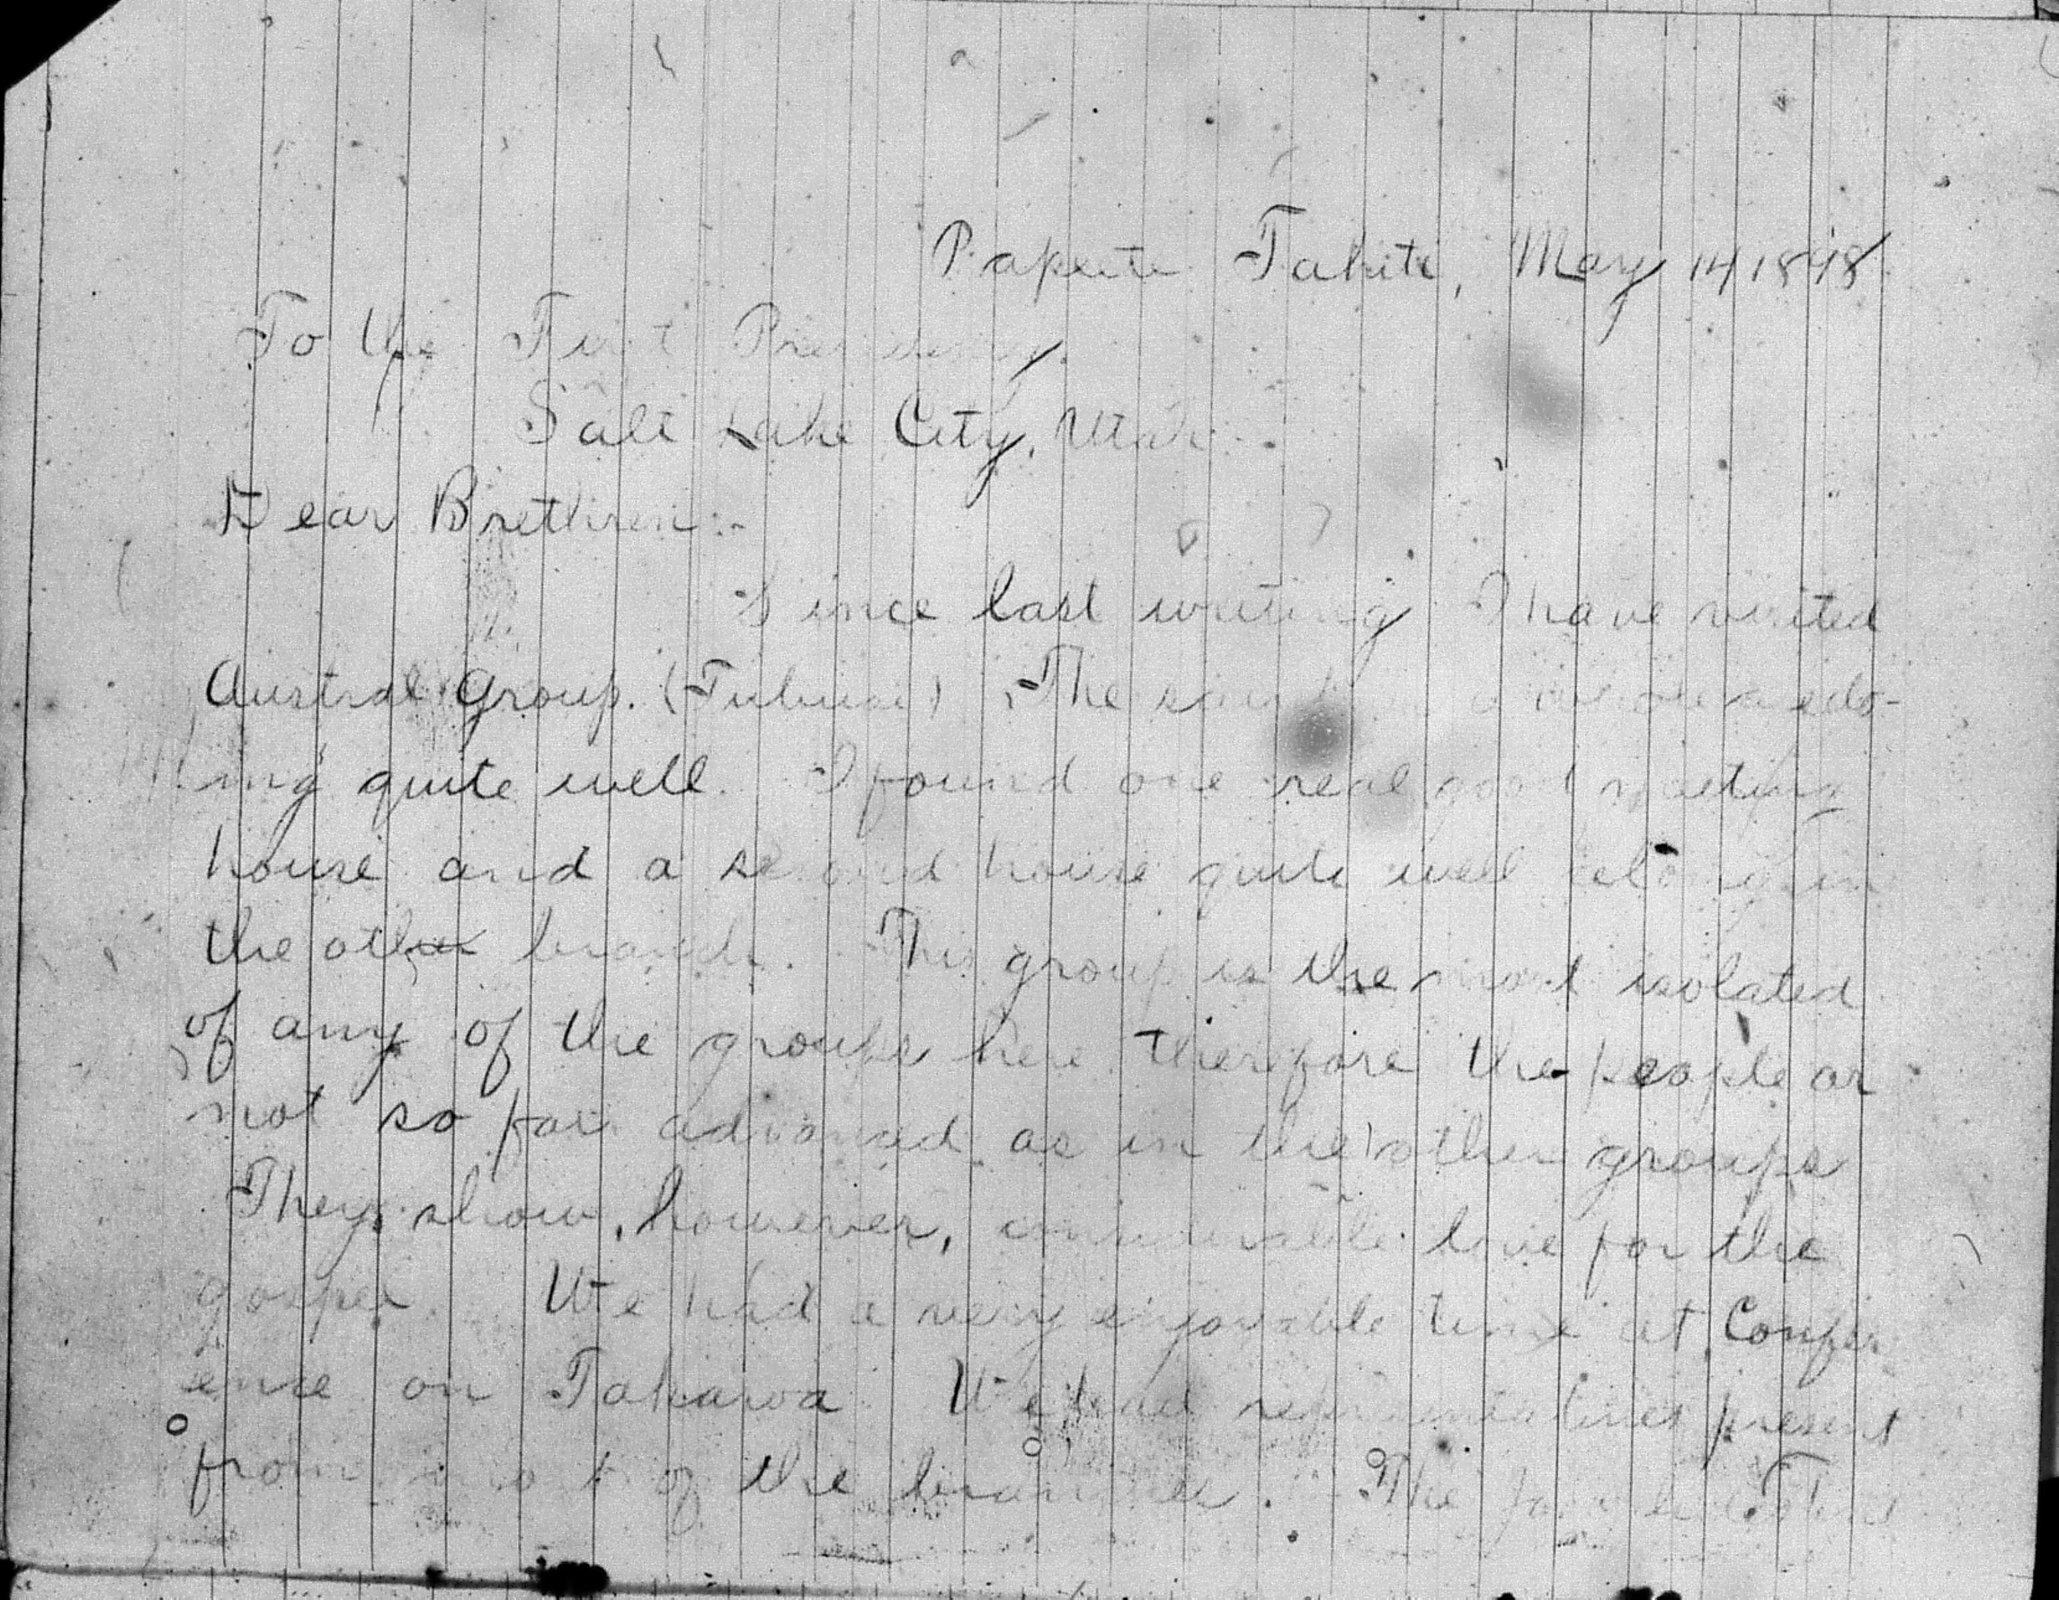 Papeete Tahiti, May 14 1898
To the First Presidency.
Salt Lake City, Utah
Dear Brethren:-
Since last writing I have visited
Austral Group. (Tubuai) The saints a whole are do-
ing quite well. I found one real good meeting
house and a second house quite well along in
the other branch. This group is the most isolated
of any of the groups here therefore the people ar
not so far advanced as in the other groups
They show, however, considerable love for the
gospel. We had a very enjoyable time at Confer
ence on Takaroa We had representatives present
from most of the branches. The